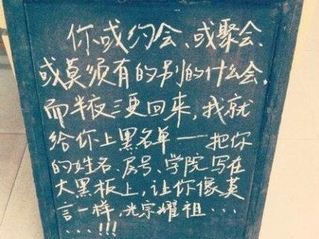 你或约会、或聚会、
或莫须有的别的什么会,
而半夜三更回来,我就
给你上黑名单——把你
的姓名、房号、学院写在
大黑板上,让你像英
言一样,光宗耀祖...
...!!!